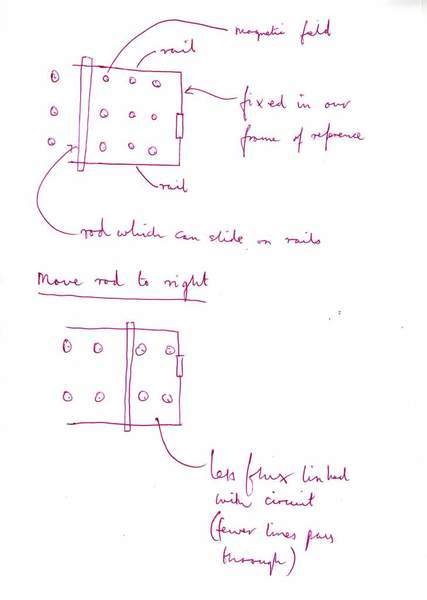 magnetic field
rail
fixed in our
frame of reference
rail
rod which can slide on rails
Move rod to right
less flux linked
with circuit
(fewer lines pass
through)